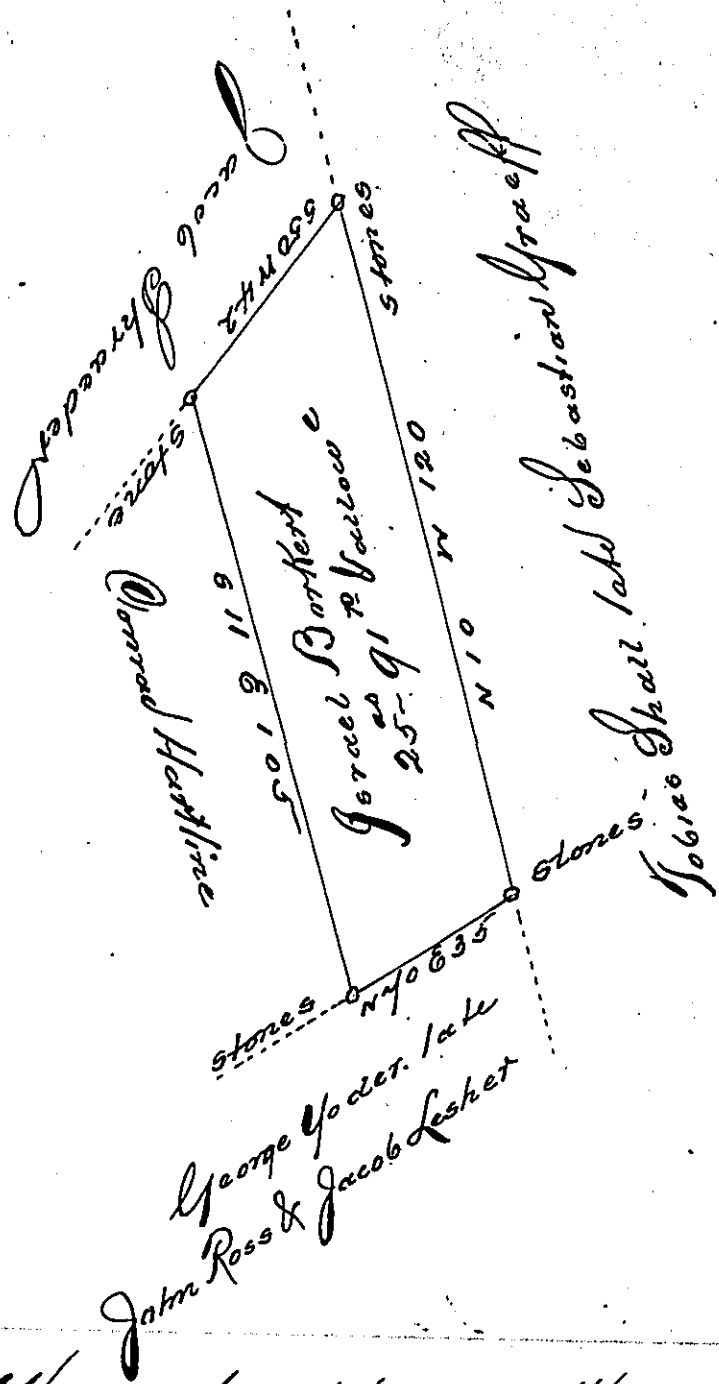 Jacob Shraeder
S50W42
Stones
Stone
Conrad Hartline
S 11 E 105
Israel Burkert
as ps
25 - 91 Vallow e
N 10 W 120
Tobias Shall late Sebastian Graeff
Stones
N70E35
Stones
George Yoder late
John Ross & Jacob Lesher